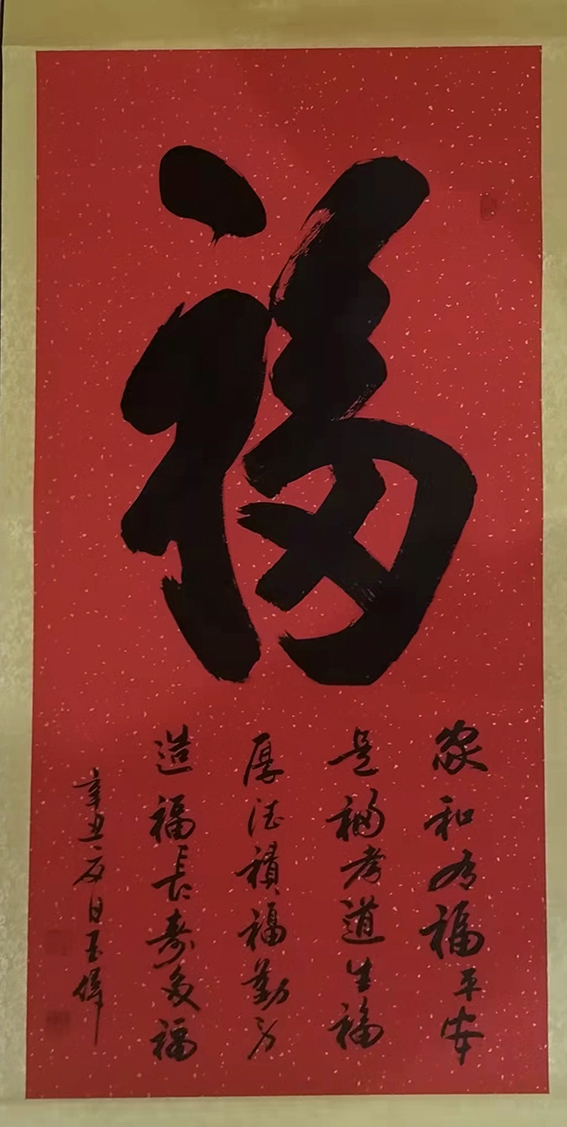 福
家和有福平安
是福孝道生福
厚德積福勤劳
造福長寿多福
辛丑夏日玉偉